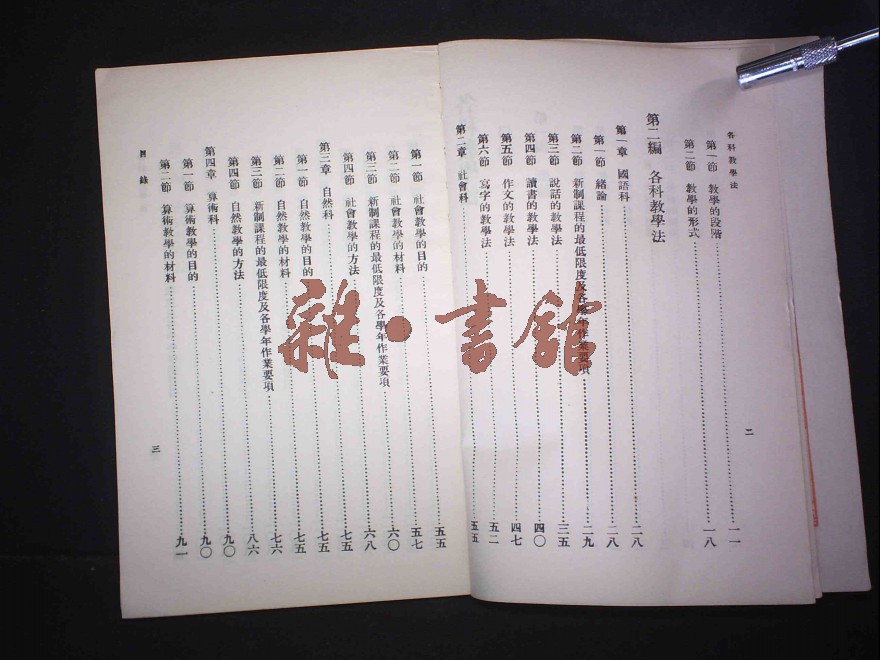 各科教學法
第一節 教學的段階……一一
第二節 教學的形式……一八
第二編 各科教學法
第一章 國語科……二八
第一節 緒論……二八
第二節 新制課程的最低限度及各學年作業要項……二九
第三節 說話的教學法……三五
第四節 讀書的教學法……四〇
第五節 作文的教學法……四七
第六節 寫字的教學法……五二
第二章 社會科……五五
二
第一節 社會教學的目的……五五
第二節 社會教學的材料……五七
第三節 新制課程的最低限度及各學年作業要項……六〇
第四節 社會教學的方法……六八
第三章 自然科……七五
第一節 自然教學的目的……七五
第二節 自然教學的材料……七五
第三節 新制課程的最低限度及各學年作業要項……七六
第四節 自然教學的方法……八六
第四章 算術科……九〇
第一節 算術教學的目的……九〇
第二節 算術教學的材料……九一
目錄
三
雜·書館